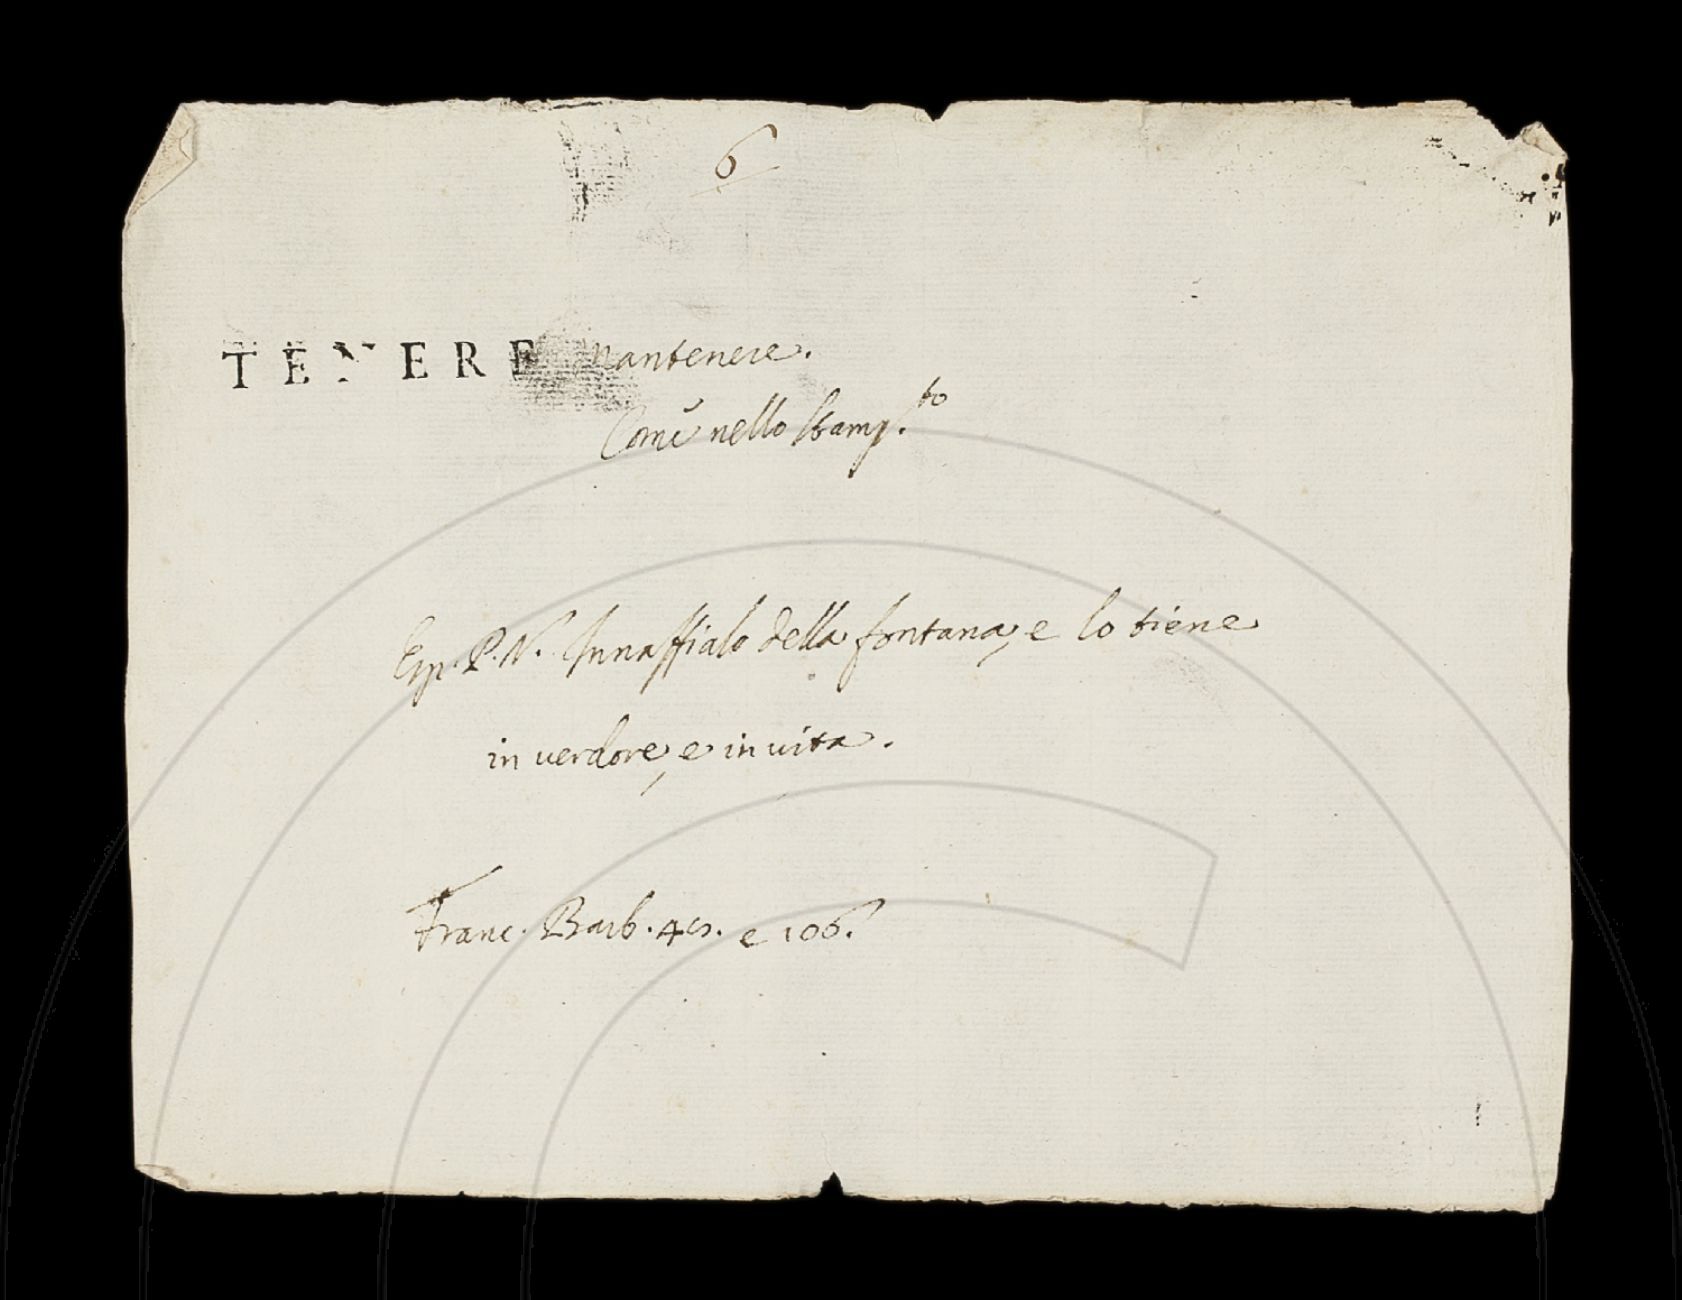 6
TENERE mantenere.
Come nello stamp.to
Esp. P. N. Innaffialo della fontana, e lo tiene
in verdore, e in vita.
Franc. Barb. e 106.